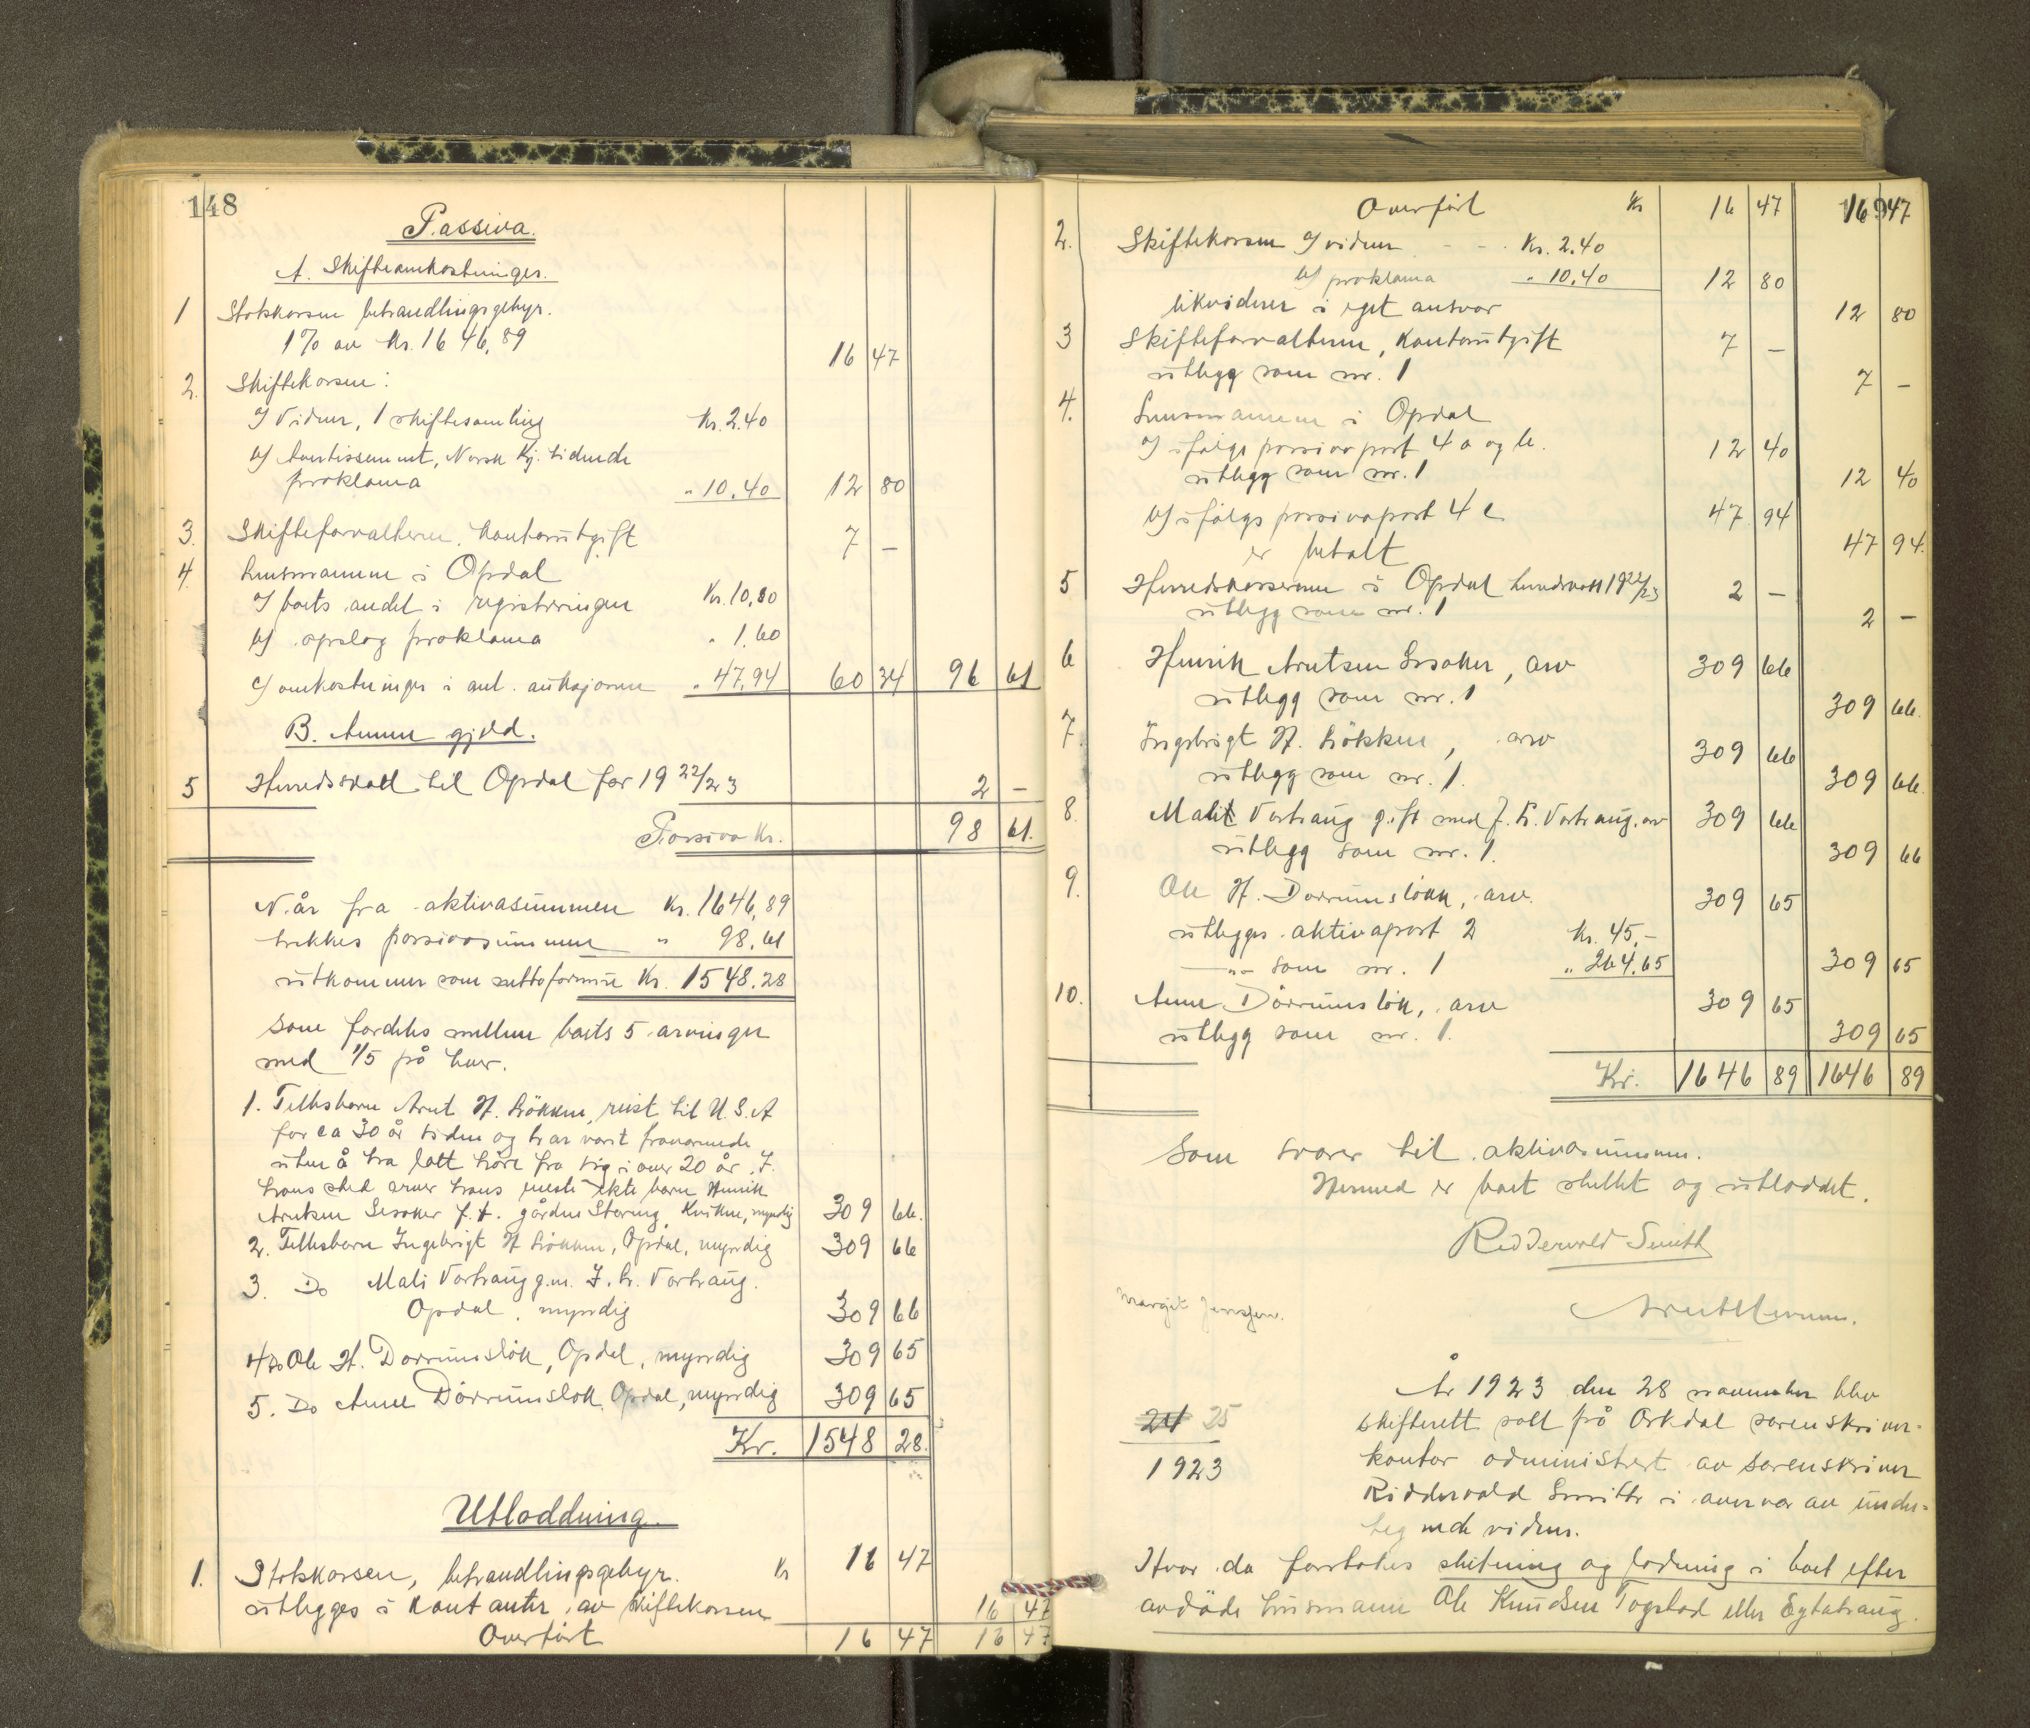 148
Passiva.
A. Skifteomkostninger.
1 Statskassen behandlingsgebyr.
1% av Kr. 1646,89 16 47
2. Skiftekassen:
a/ Vidner, 1 skiftesamling Kr. 2.40
b/ Avertissement, Norsk Kj. tidende
proklama " 10.40 12 80
3. Skifteforvalteren, kontorutgift 7 —
4. Lensmannen i Opdal
a/ boets andel i registreringen Kr. 10,80
b/ opslag proklama " 1.60
c/ omkostninger i anl. auksjonen " 47,94 60 34 96 61
B. Annen gjeld.
5 Herredsskatt til Opdal for 1922/23 2 —
Passiva Kr. 98 61.
Når fra aktivasummen Kr. 1646,89
trekkes passivasummen " 98,61
utkommer som nettoformue Kr. 1548.28
som fordeles mellem boets 5 arvinger
med 1/5 på hver.
1. Fellesbarn Arnt H. Løkken, reist til U.S.A
for ca 30 år siden og har været fraværende
uten å ha latt høre fra sig i over 20 år. I
hans sted arver hans eneste ekte barn Henrik
Arntsen Sesaker f.t. gården Storeng, Kvikne, myndig 309 66.
2. Fellesbarn Ingebrigt H Løkken, Opdal, myndig 309 66
3. Do Mali Vorhaug g.m. J. Kr. Vorhaug.
Opdal, myndig 309 66
4 Do Ole H. Dørrumsløk, Opdal, myndig 309 65
5. Do Anne Dørrumsløk Opdal, myndig 309 65
Kr. 1548 28.
Utloddning.
1. Statskassen, behandlingsgebyr. Kr 16 47
utlegges i kontanter av skiftekassen 16 47
Overført 16 47 16 47
Overført Kr 16 47 16 47
2. Skiftekassen a/ vidner Kr. 2.40
b/ proklama " 10,40 12 80
likviderer i eget ansvar 12 80
3 Skifteforvalteren, Kontorutgift 7 —
utlegg som nr. 1 7 —
4. Lensmannen i Opdal
a/ ifølge passivapost 4 a og b. 12 40
utlegg som nr. 1 12 40
b/ ifølge passivapost 4 c 47 94
er betalt 47 94.
5 Herredskassereren i Opdal herredsskatt 1922/23 2 —
utlegg som nr. 1 2 —
6 Henrik Arntsen Sesaker, arv 309 66
utlegg som nr. 1 309 66.
7. Ingebrigt H. Løkken, arv 309 66
utlegg som nr. 1. 309 66.
8. Malit Vorhaug gift med J. Kr. Vorhaug. arv 309 66
utlegg som nr. 1. 309 66
9. Ole H. Dørrumsløkk, arv. 309 65
utlegges aktivapost 2 Kr. 45,-
—"— som nr. 1 " 264.65 309 65
10. Anne Dørrumsløk, arv 309 65
utlegg som nr. 1. 309 65
Kr. 1646 89 1646 89
som svarer til aktivasummen.
Hermed er boet sluttet og utloddet.
Ridderwold Smith
Margit Jenssen.
År 1923 den 28 november blev
24 25 skifterett satt på Orkdal sorenskriver-
1923 kontor administrert av sorenskriver
Ridderwold Smith i overvær av under-
tegnede vidner.
Hvor da foretokes slutning og lodning i boet efter
avdøde husmann Ole Knudsen Togstad eller